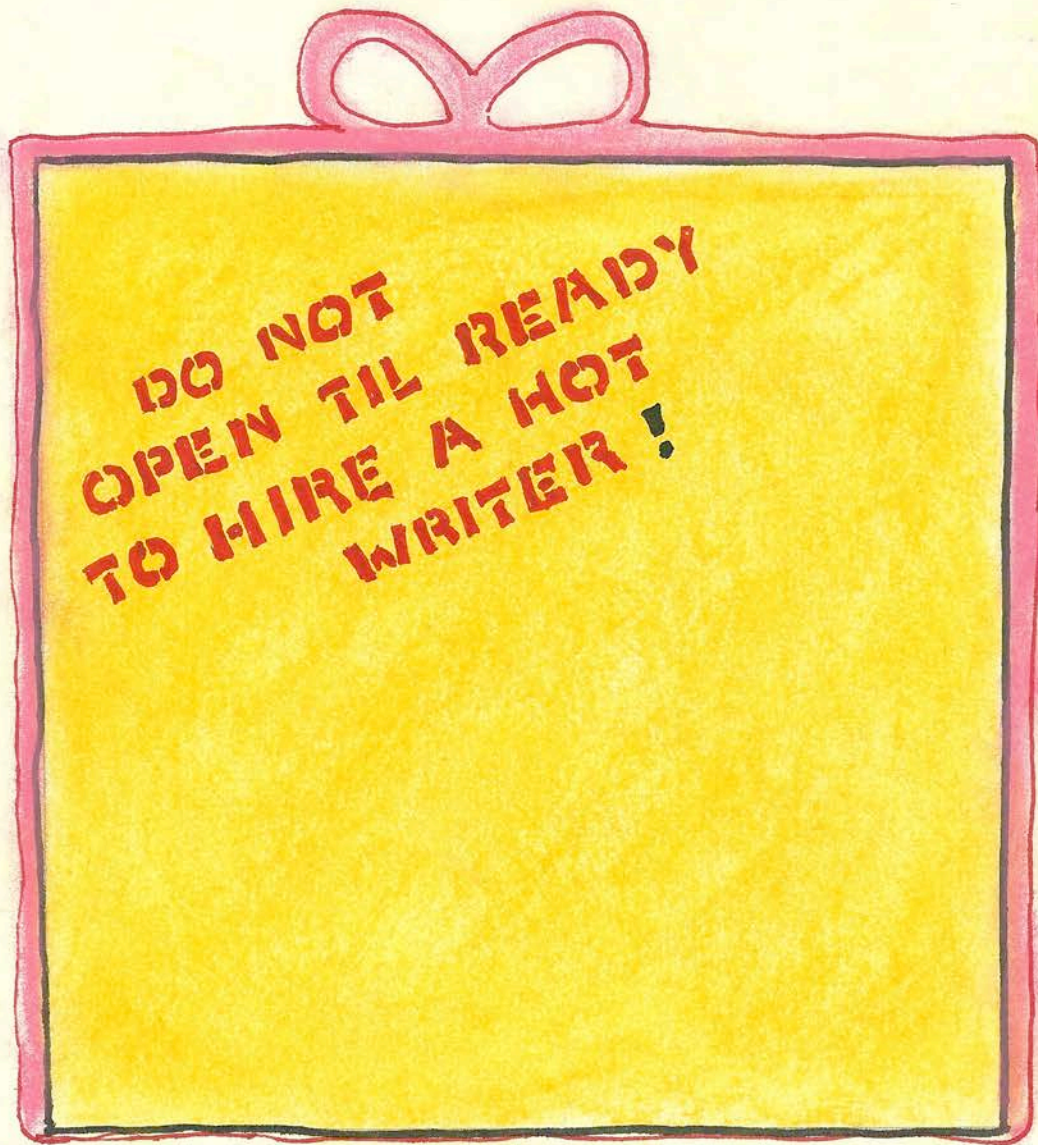 DO NOT
OPEN TIL READY
TO HIRE A HOT
WRITER!